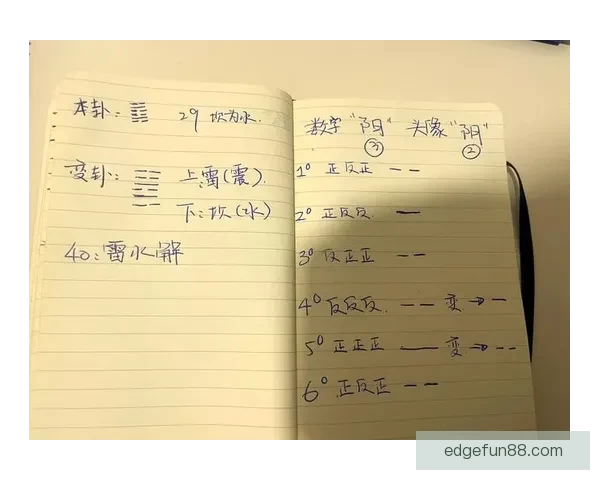 本卦: 29 坎为水.
变卦: 上:雷(震).
下:坎(水)
40:雷水解
数字"阳" 头像"阴"
③ ②
1° 正反正 – –
2° 正反反. —
3° 反正正 – –
4° 反反反. – – 变 → –
5° 正正正 — 变 → – –
6° 正反正 – –
edgefun88.com